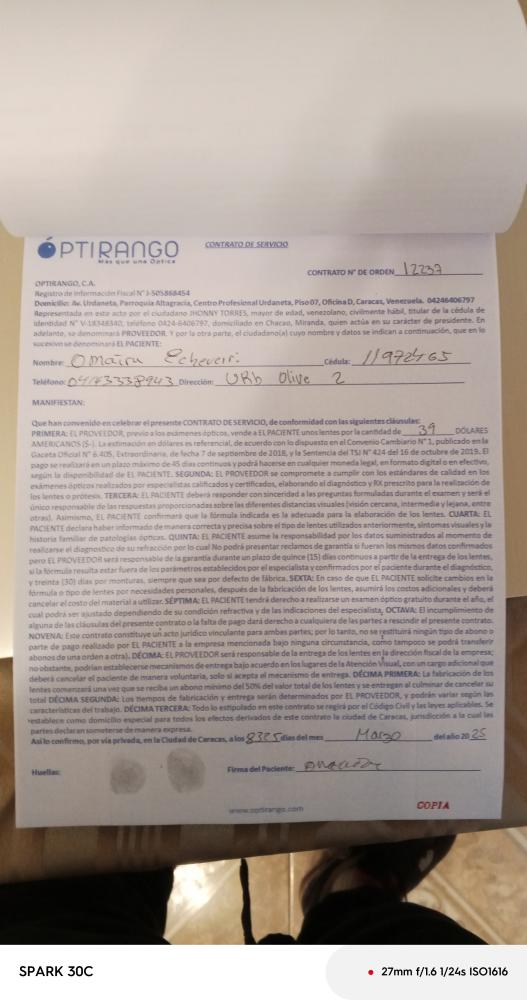 OPTIRANGO
Más que una Optica
CONTRATO DE SERVICIO
CONTRATO N° DE ORDEN 12237
OPTIRANGO, C.A.
Registro de Información Fiscal N° J-505868454
Domicilio: Av. Urdaneta, Parroquia Altagracia, Centro Profesional Urdaneta, Piso 07, Oficina D, Caracas, Venezuela. 04246406797
Representada en este acto por el ciudadano JHONNY TORRES, mayor de edad, venezolano, civilmente hábil, titular de la cédula de
identidad N° V-18348340, teléfono 0424-6406797, domiciliado en Chacao, Miranda, quien actúa en su carácter de presidente. En
adelante, se denominará PROVEEDOR. Y por la otra parte, el ciudadano(a) cuyo nombre y datos se indican a continuación, que en lo
sucesivo se denominará EL PACIENTE:
Nombre: Omaira Echeverri Cédula: 11972465
Teléfono: 04143338943 Dirección: URb Olive 2
MANIFIESTAN:
Que han convenido en celebrar el presente CONTRATO DE SERVICIO, de conformidad con las siguientes cláusulas:
PRIMERA: EL PROVEEDOR, previo a los exámenes ópticos, vende a EL PACIENTE unos lentes por la cantidad de 39 DÓLARES
AMERICANOS ($-). La estimación en dólares es referencial, de acuerdo con lo dispuesto en el Convenio Cambiario N° 1, publicado en la
Gaceta Oficial N° 6.405, Extraordinaria, de fecha 7 de septiembre de 2018, y la Sentencia del TSJ N° 424 del 16 de octubre de 2019. El
pago se realizará en un plazo máximo de 45 días continuos y podrá hacerse en cualquier moneda legal, en formato digital o en efectivo,
según la disponibilidad de EL PACIENTE. SEGUNDA: EL PROVEEDOR se compromete a cumplir con los estándares de calidad en los
exámenes ópticos realizados por especialistas calificados y certificados, elaborando el diagnóstico y RX prescrito para la realización de
los lentes o prótesis. TERCERA: EL PACIENTE deberá responder con sinceridad a las preguntas formuladas durante el examen y será el
único responsable de las respuestas proporcionadas sobre las diferentes distancias visuales (visión cercana, intermedia y lejana, entre
otras). Asimismo, EL PACIENTE confirmará que la fórmula indicada es la adecuada para la elaboración de los lentes. CUARTA: EL
PACIENTE declara haber informado de manera correcta y precisa sobre el tipo de lentes utilizados anteriormente, síntomas visuales y la
historia familiar de patologías ópticas. QUINTA: EL PACIENTE asume la responsabilidad por los datos suministrados al momento de
realizarse el diagnostico de su refracción por lo cual No podrá presentar reclamos de garantía si fueran los mismos datos confirmados
pero EL PROVEEDOR será responsable de la garantía durante un plazo de quince (15) días continuos a partir de la entrega de los lentes,
si la fórmula resulta estar fuera de los parámetros establecidos por el especialista y confirmados por el paciente durante el diagnóstico,
y treinta (30) días por monturas, siempre que sea por defecto de fábrica. SEXTA: En caso de que EL PACIENTE solicite cambios en la
fórmula o tipo de lentes por necesidades personales, después de la fabricación de los lentes, asumirá los costos adicionales y deberá
cancelar el costo del material a utilizar. SÉPTIMA: EL PACIENTE tendrá derecho a realizarse un examen óptico gratuito durante el año, el
cual podrá ser ajustado dependiendo de su condición refractiva y de las indicaciones del especialista. OCTAVA: El incumplimiento de
alguna de las cláusulas del presente contrato o la falta de pago dará derecho a cualquiera de las partes a rescindir el presente contrato.
NOVENA: Este contrato constituye un acto jurídico vinculante para ambas partes; por lo tanto, no se restituirá ningún tipo de abono o
parte de pago realizado por EL PACIENTE a la empresa mencionada bajo ninguna circunstancia, como tampoco se podrá transferir
abonos de una orden a otra). DÉCIMA: EL PROVEEDOR será responsable de la entrega de los lentes en la dirección fiscal de la empresa;
no obstante, podrían establecerse mecanismos de entrega bajo acuerdo en los lugares de la Atención Visual, con un cargo adicional que
deberá cancelar el paciente de manera voluntaria, solo si acepta el mecanismo de entrega. DÉCIMA PRIMERA: La fabricación de los
lentes comenzará una vez que se reciba un abono mínimo del 50% del valor total de los lentes y se entregan al culminar de cancelar su
total DÉCIMA SEGUNDA: Los tiempos de fabricación y entrega serán determinados por EL PROVEEDOR, y podrán variar según las
características del trabajo. DÉCIMA TERCERA: Todo lo estipulado en este contrato se regirá por el Código Civil y las leyes aplicables. Se
establece como domicilio especial para todos los efectos derivados de este contrato la ciudad de Caracas, jurisdicción a la cual las
partes declaran someterse de manera expresa.
Así lo confirmo, por vía privada, en la Ciudad de Caracas, a los días del mes Marzo del año 20 25
Huellas: Firma del Paciente:
www.optirango.com
COPIA
SPARK 30C
27mm f/1.6 1/24s ISO1616